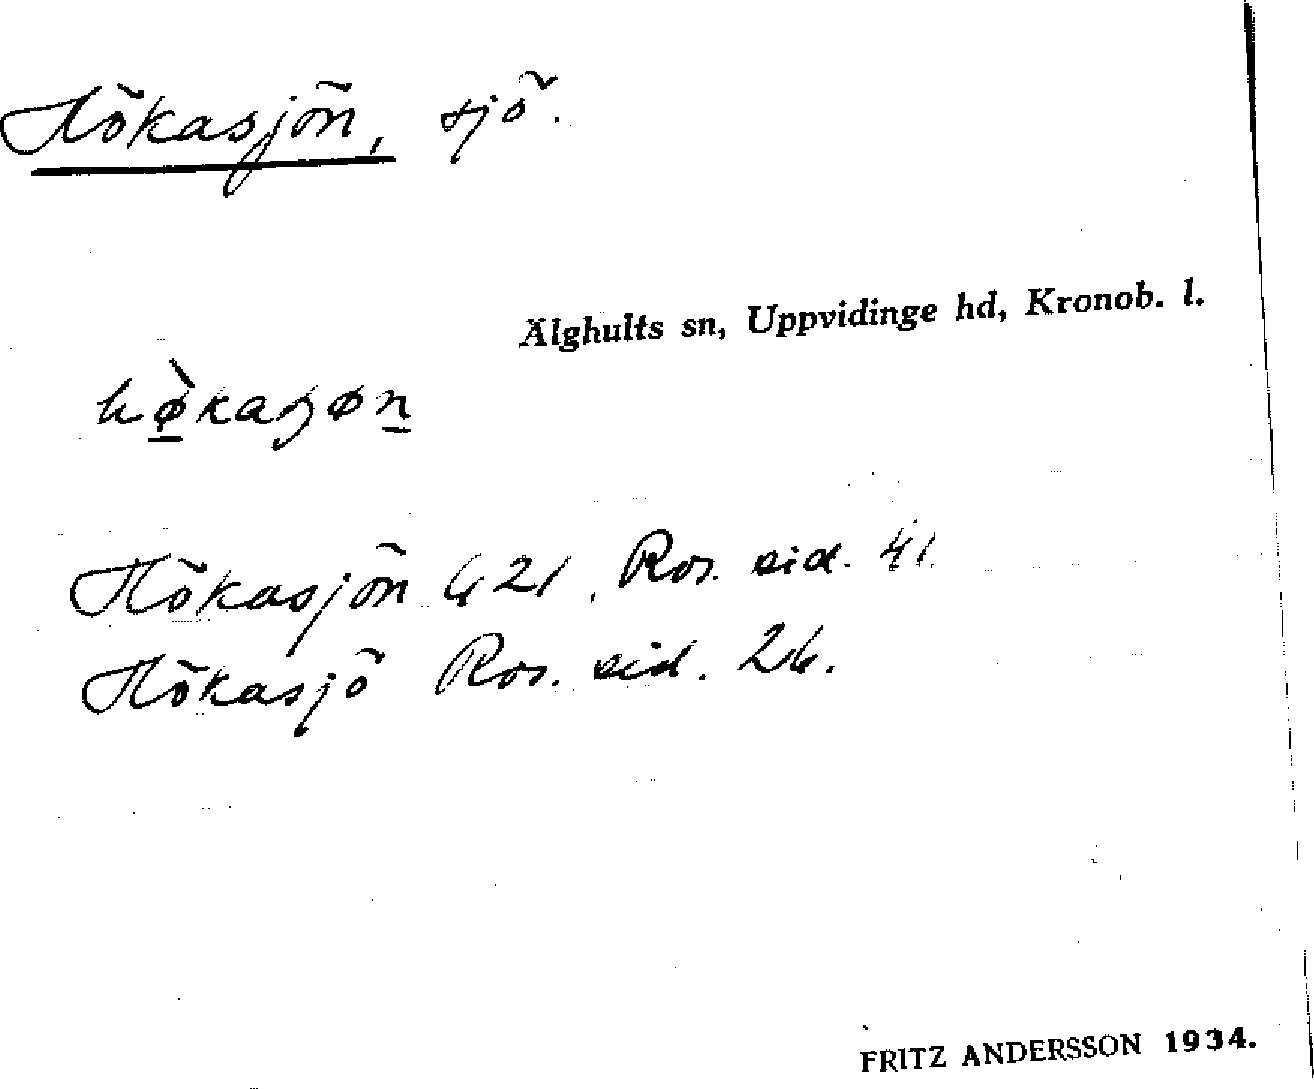 Hökasjön, sjö.
Älghults sn, Uppvidinge hd, Kronob. l.
Hökasjön G 21, Ros. sid. 41.
Hökasjö Ros. sid. 26.
FRITZ ANDERSSON 1934.